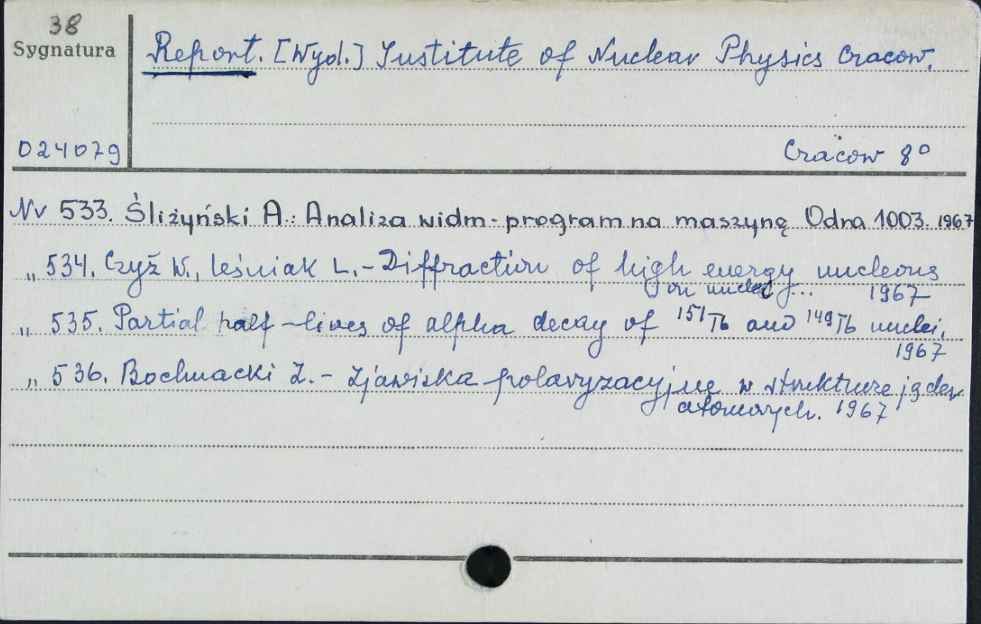 38
Sygnatura
Report. [Wyd.] Institute of Nuclear Physics Cracow.
024079
Cracow 8°
Nr 533. Śliżyński A.: Analiza widm - program na maszynę Odra 1003. 1967
„ 534. Czyż W., Leśniak L. - Diffraction of high energy nucleons
on nuclei... 1967
„ 535. Partial half-lives of alpha decay of ¹⁵¹Tb and ¹⁴⁹Tb nuclei.
1967
„ 536. Bochnacki Z. - Zjawiska polaryzacyjne w strukturze jąder
atomowych. 1967